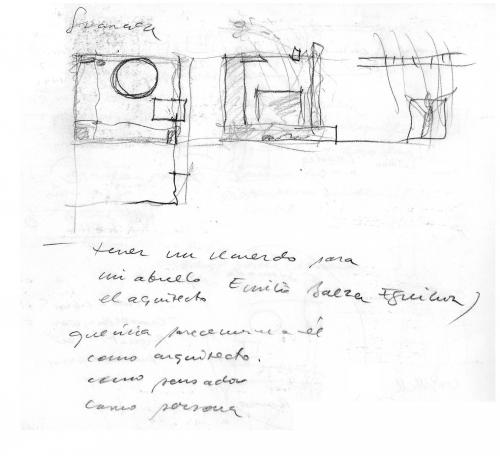 Granada
— tener un recuerdo para
mi abuelo
el arquitecto Emilio Baeza Eguiluz)
quería parecerme a él
como arquitecto.
como pensador
como persona